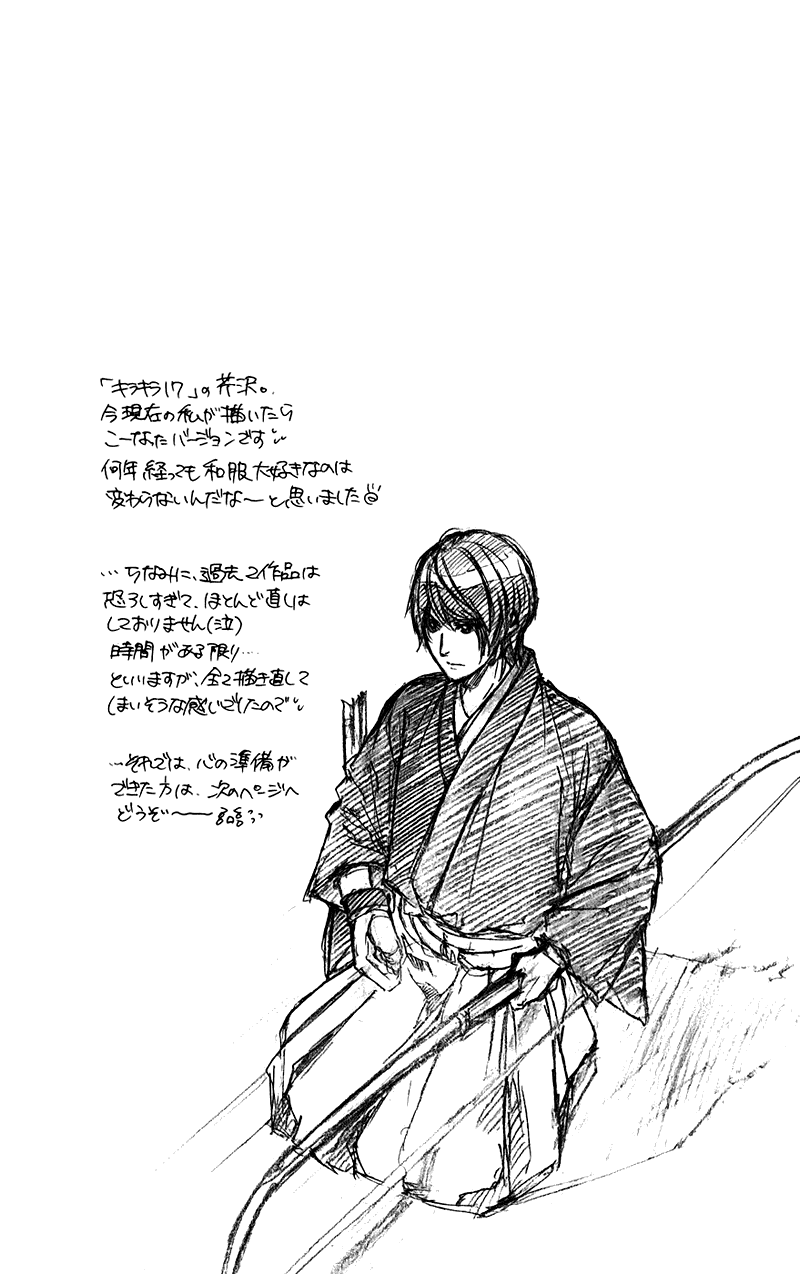 「キラキラ17」の芹沢。
今現在の私が描いたら
こーなったバージョンです
何年経っても和服大好きなのは
変わらないんだな〜と思いました
…ちなみに、過去2作品は
恐ろしすぎて、ほとんど直しは
しておりません(泣)
時間がある限り…
といいますが、全て描き直して
しまいそうな感じでしたので
…それでは、心の準備が
できた方は、次のページへ
どうぞ〜